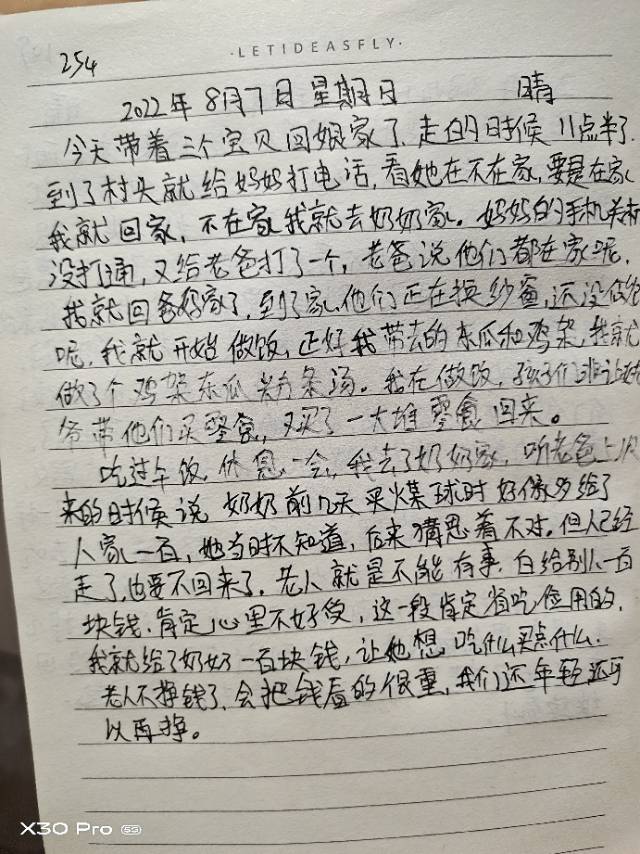 ·LETIDEASFLY·
254
2022年 8月7日 星期日 晴
今天带着三个宝贝回娘家了,走的时候11点半了.
到了村头就给妈妈打电话,看她在不在家,要是在家
我就回家,不在家我就去奶奶家。妈妈的手机关机
没打通,又给老爸打了一个,老爸说他们都在家呢,
我就回爸妈家了,到了家他们正在换纱窗,还没做饭
呢,我就开始做饭,正好我带去的冬瓜和鸡架,我就
做了个鸡架冬瓜粉条汤。我在做饭,孩子们非让
爸带他们买零食,又买了一大堆零食回来。
吃过午饭,休息一会,我去了奶奶家,听老爸上次
来的时候说 奶奶前几天买煤球时好像多给了
人家一百,她当时不知道,后来猜思着不对.但人已经
走了,也要不回来了.老人就是不能有事.白给别人一百
块钱.肯定心里不好受,这一段肯定省吃俭用的,
我就给了奶奶一百块钱,让她想吃什么买点什么.
老人不挣钱了,会把钱看的很重,我们还年轻还可
以再挣。
X30 Pro 5G